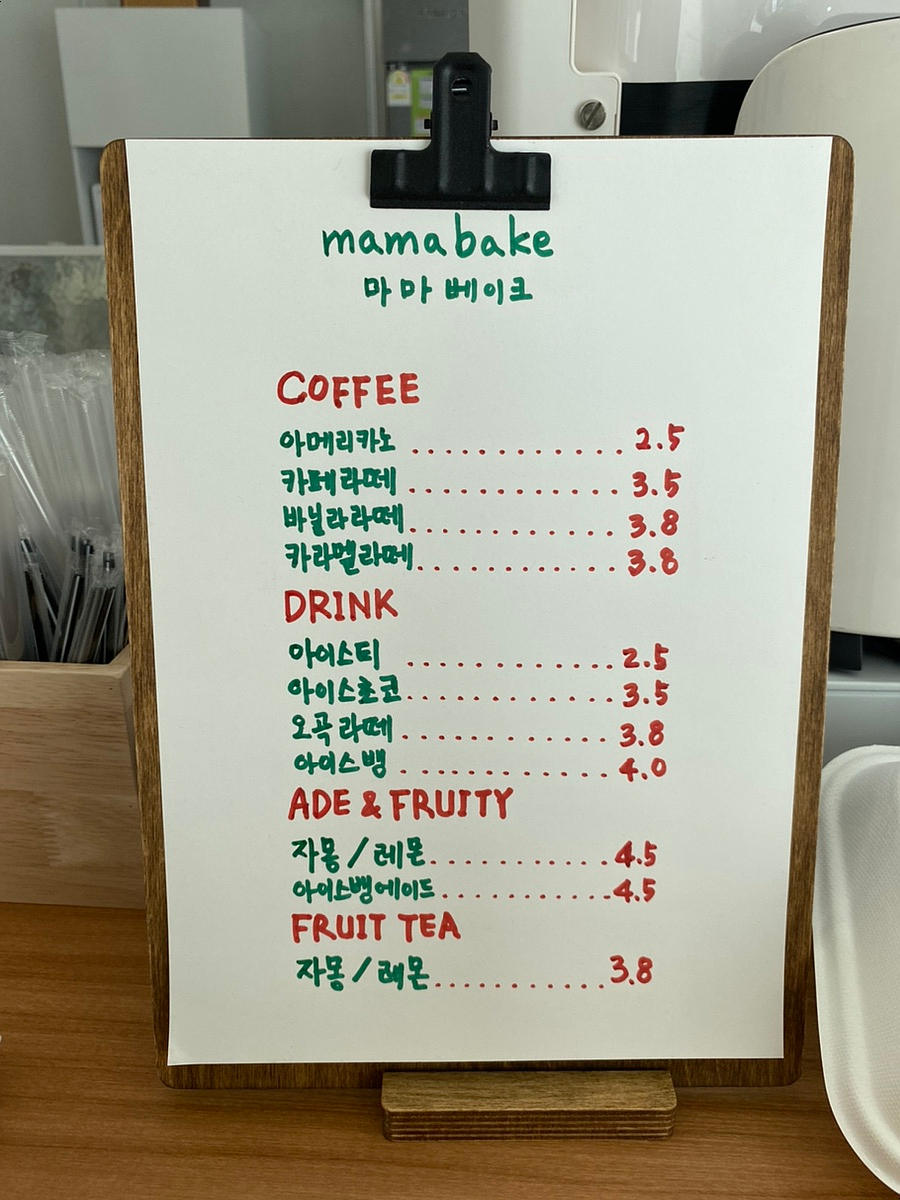 mamabake
마마베이크
COFFEE
아메리카노 ............ 2.5
카페라떼 ............ 3.5
바닐라라떼 ............ 3.8
카라멜라떼 ............ 3.8
DRINK
아이스티 ............ 2.5
아이스초코 ............ 3.5
오곡라떼 ............ 3.8
아이스뱅 ............ 4.0
ADE & FRUITY
자몽/레몬 ............ 4.5
아이스뱅에이드 ............ 4.5
FRUIT TEA
자몽/레몬 ............ 3.8